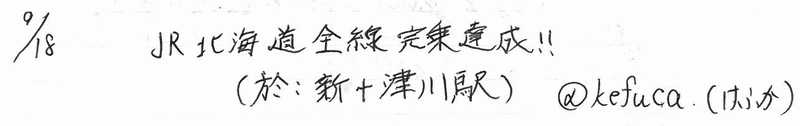 9/18 JR北海道全線完乗達成!!
(於:新十津川駅) @kefuca.(けふか)